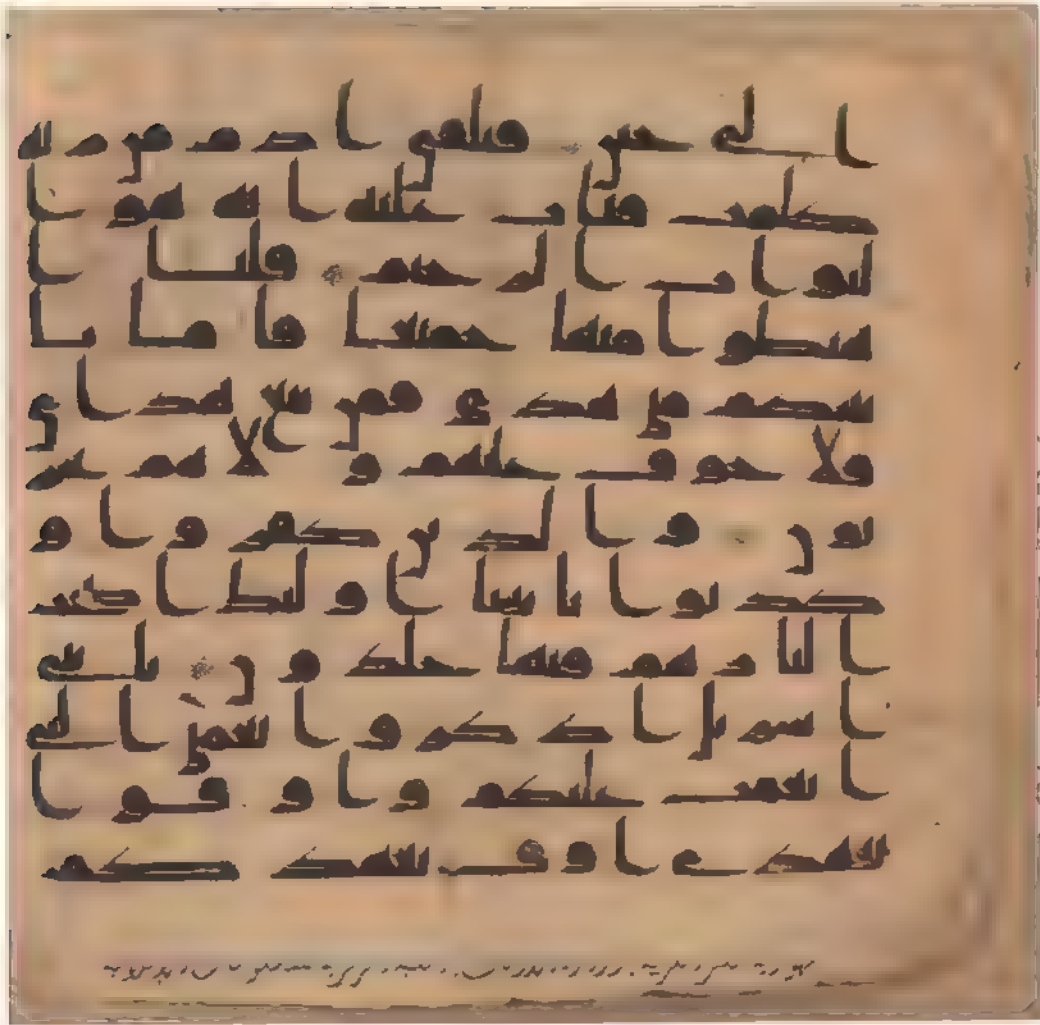 الى حين فتلقى ادم من ربه
كلمت فتاب عليه انه هو ا
لتواب الرحيم قلنا ا
هبطوا منها جميعا فاما يا
تينكم منى هدى فمن تبع هداى
فلا خوف عليهم ولا هم يحز
نون والذين كفروا و
كذبوا بايتنا اولئك اصحب
النار هم فيها خلدون يبنى
اسريل اذكروا نعمتى التى
انعمت عليكم واوفوا
بعهدى اوف بعهدكم